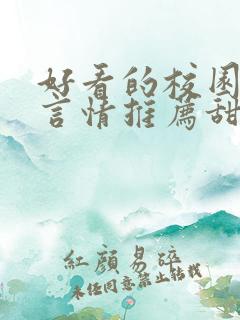 好看的校园
言情推荐甜
红颜易碎
未经同意禁止转载